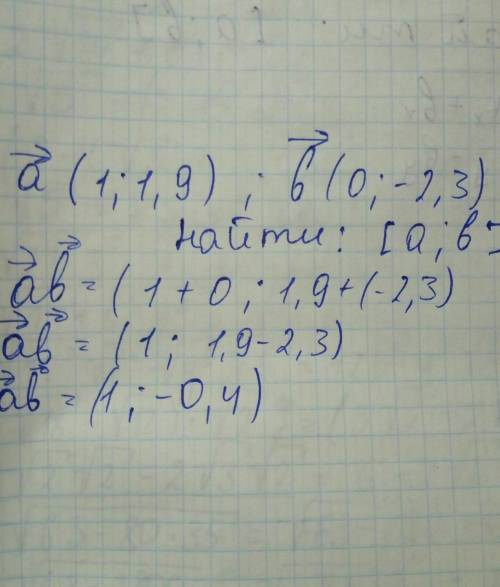 a⃗ (1; 1,9) ; b⃗ (0; -2,3)
найти: [a; b]
a⃗b⃗ = (1 + 0; 1,9 + (-2,3)
a⃗b⃗ = (1; 1,9 - 2,3)
a⃗b⃗ = (1; -0,4)